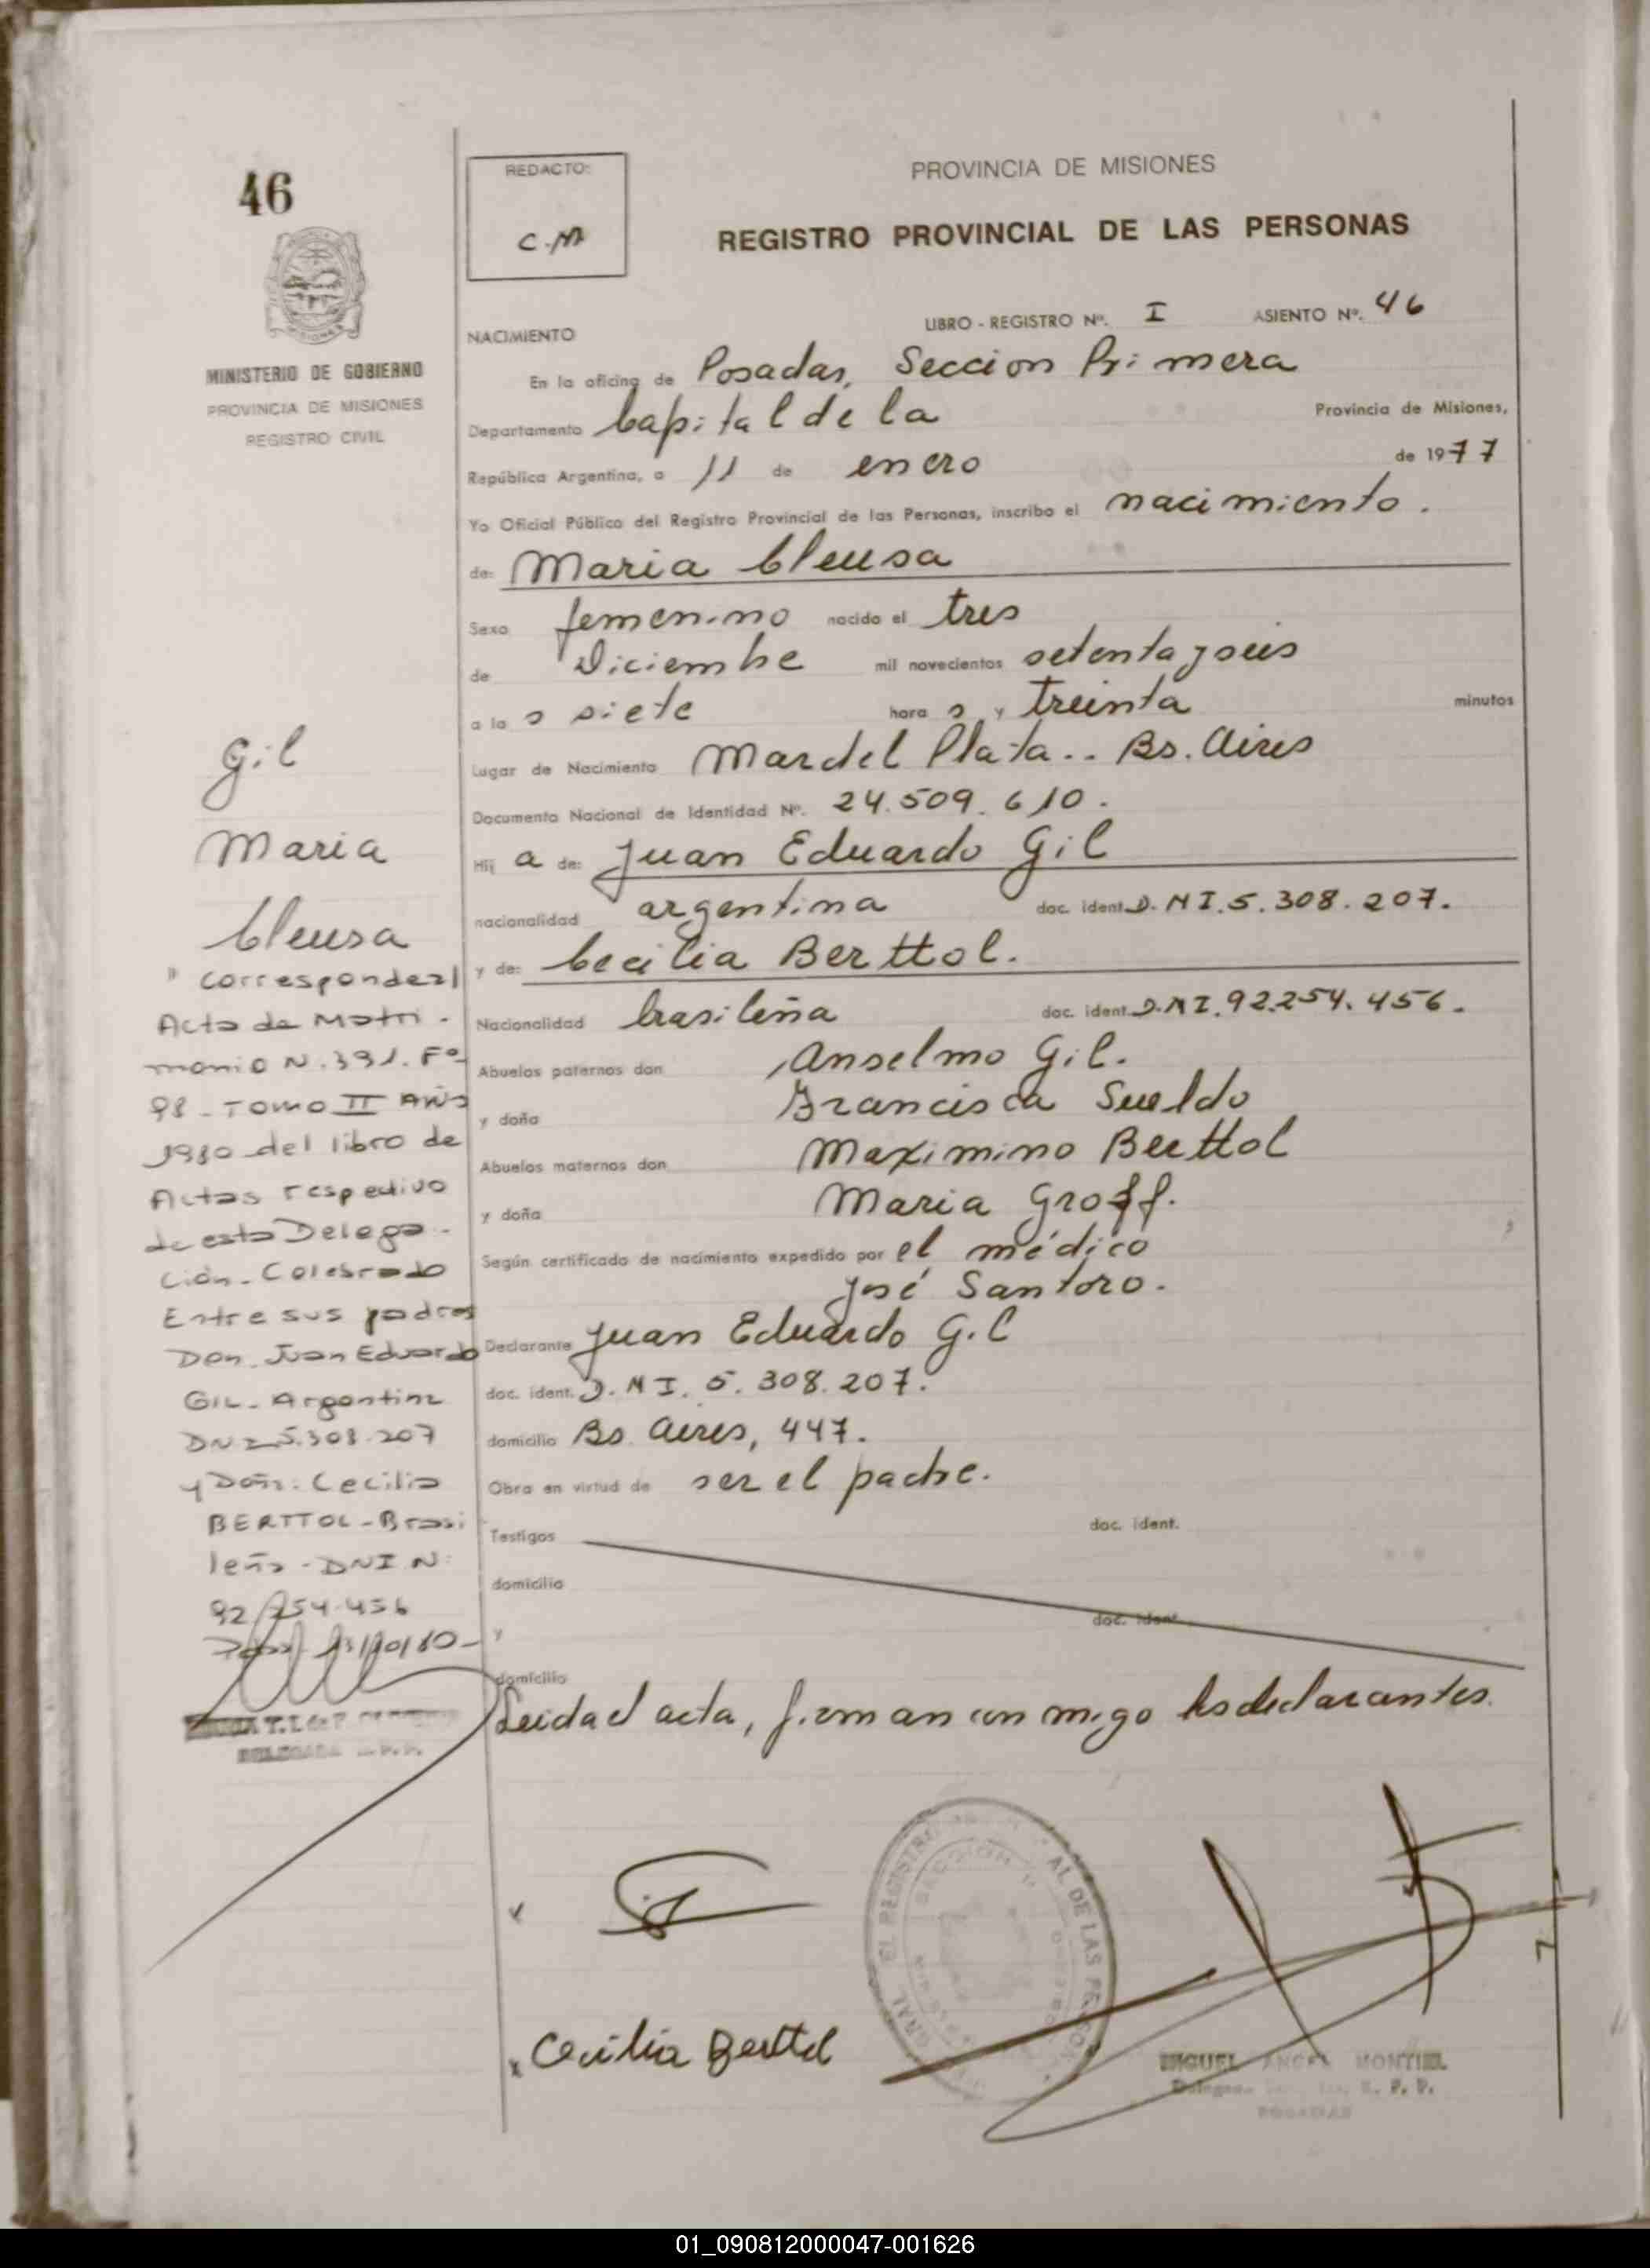 46
REDACTO:
C.M
PROVINCIA DE MISIONES
REGISTRO PROVINCIAL DE LAS PERSONAS
MINISTERIO DE GOBIERNO
PROVINCIA DE MISIONES
REGISTRO CIVIL
LIBRO - REGISTRO Nº. I ASIENTO Nº. 46
NACIMIENTO
En la oficina de Posadas, Seccion Primera
Departamento Capital de la Provincia de Misiones,
República Argentina, a 11 de enero de 1977
Yo Oficial Público del Registro Provincial de las Personas, inscribo el nacimiento.
de: Maria Cleusa
Sexo femenino nacido el tres
de Diciembre mil novecientos setenta y seis
a la s siete hora s y treinta minutos
Lugar de Nacimiento Mar del Plata.. Bs. Aires
Documento Nacional de Identidad Nº. 24.509.610.
Hij a de: Juan Eduardo Gil
nacionalidad argentina doc. ident. D.N I.5.308.207.
y de: Cecilia Berttol.
Nacionalidad brasileña doc. ident. D.N I.92.254.456.
Abuelos paternos don Anselmo Gil.
y doña Francisca Sueldo
Abuelos maternos don Maximino Berttol
y doña Maria Groff.
Según certificado de nacimiento expedido por el médico
José Santoro.
Declarante Juan Eduardo Gil
doc. ident. D.N I.5.308.207.
domicilio Bs. Aires, 447.
Obra en virtud de ser el padre.
Testigos doc. ident.
domicilio
y doc. ident.
domicilio
Leida el acta, firman conmigo los declarantes.
Gil
Maria
Cleusa
" corresponde al
Acta de Matri-
monio N.391.Fº
98 - Tomo II Año
1980 del libro de
Actas respectivo
de esta Delega-
ción. Celebrado
Entre sus padres
Don. Juan Eduardo
GIL - Argentina
DNI 5.308.207
y Doña: Cecilia
BERTTOL - Brasi
leña - DNI N:
92.254.456
13/10/80-
Cecilia Berttol
MIGUEL ANGEL MONTIEL
POSADAS
01_090812000047-001626